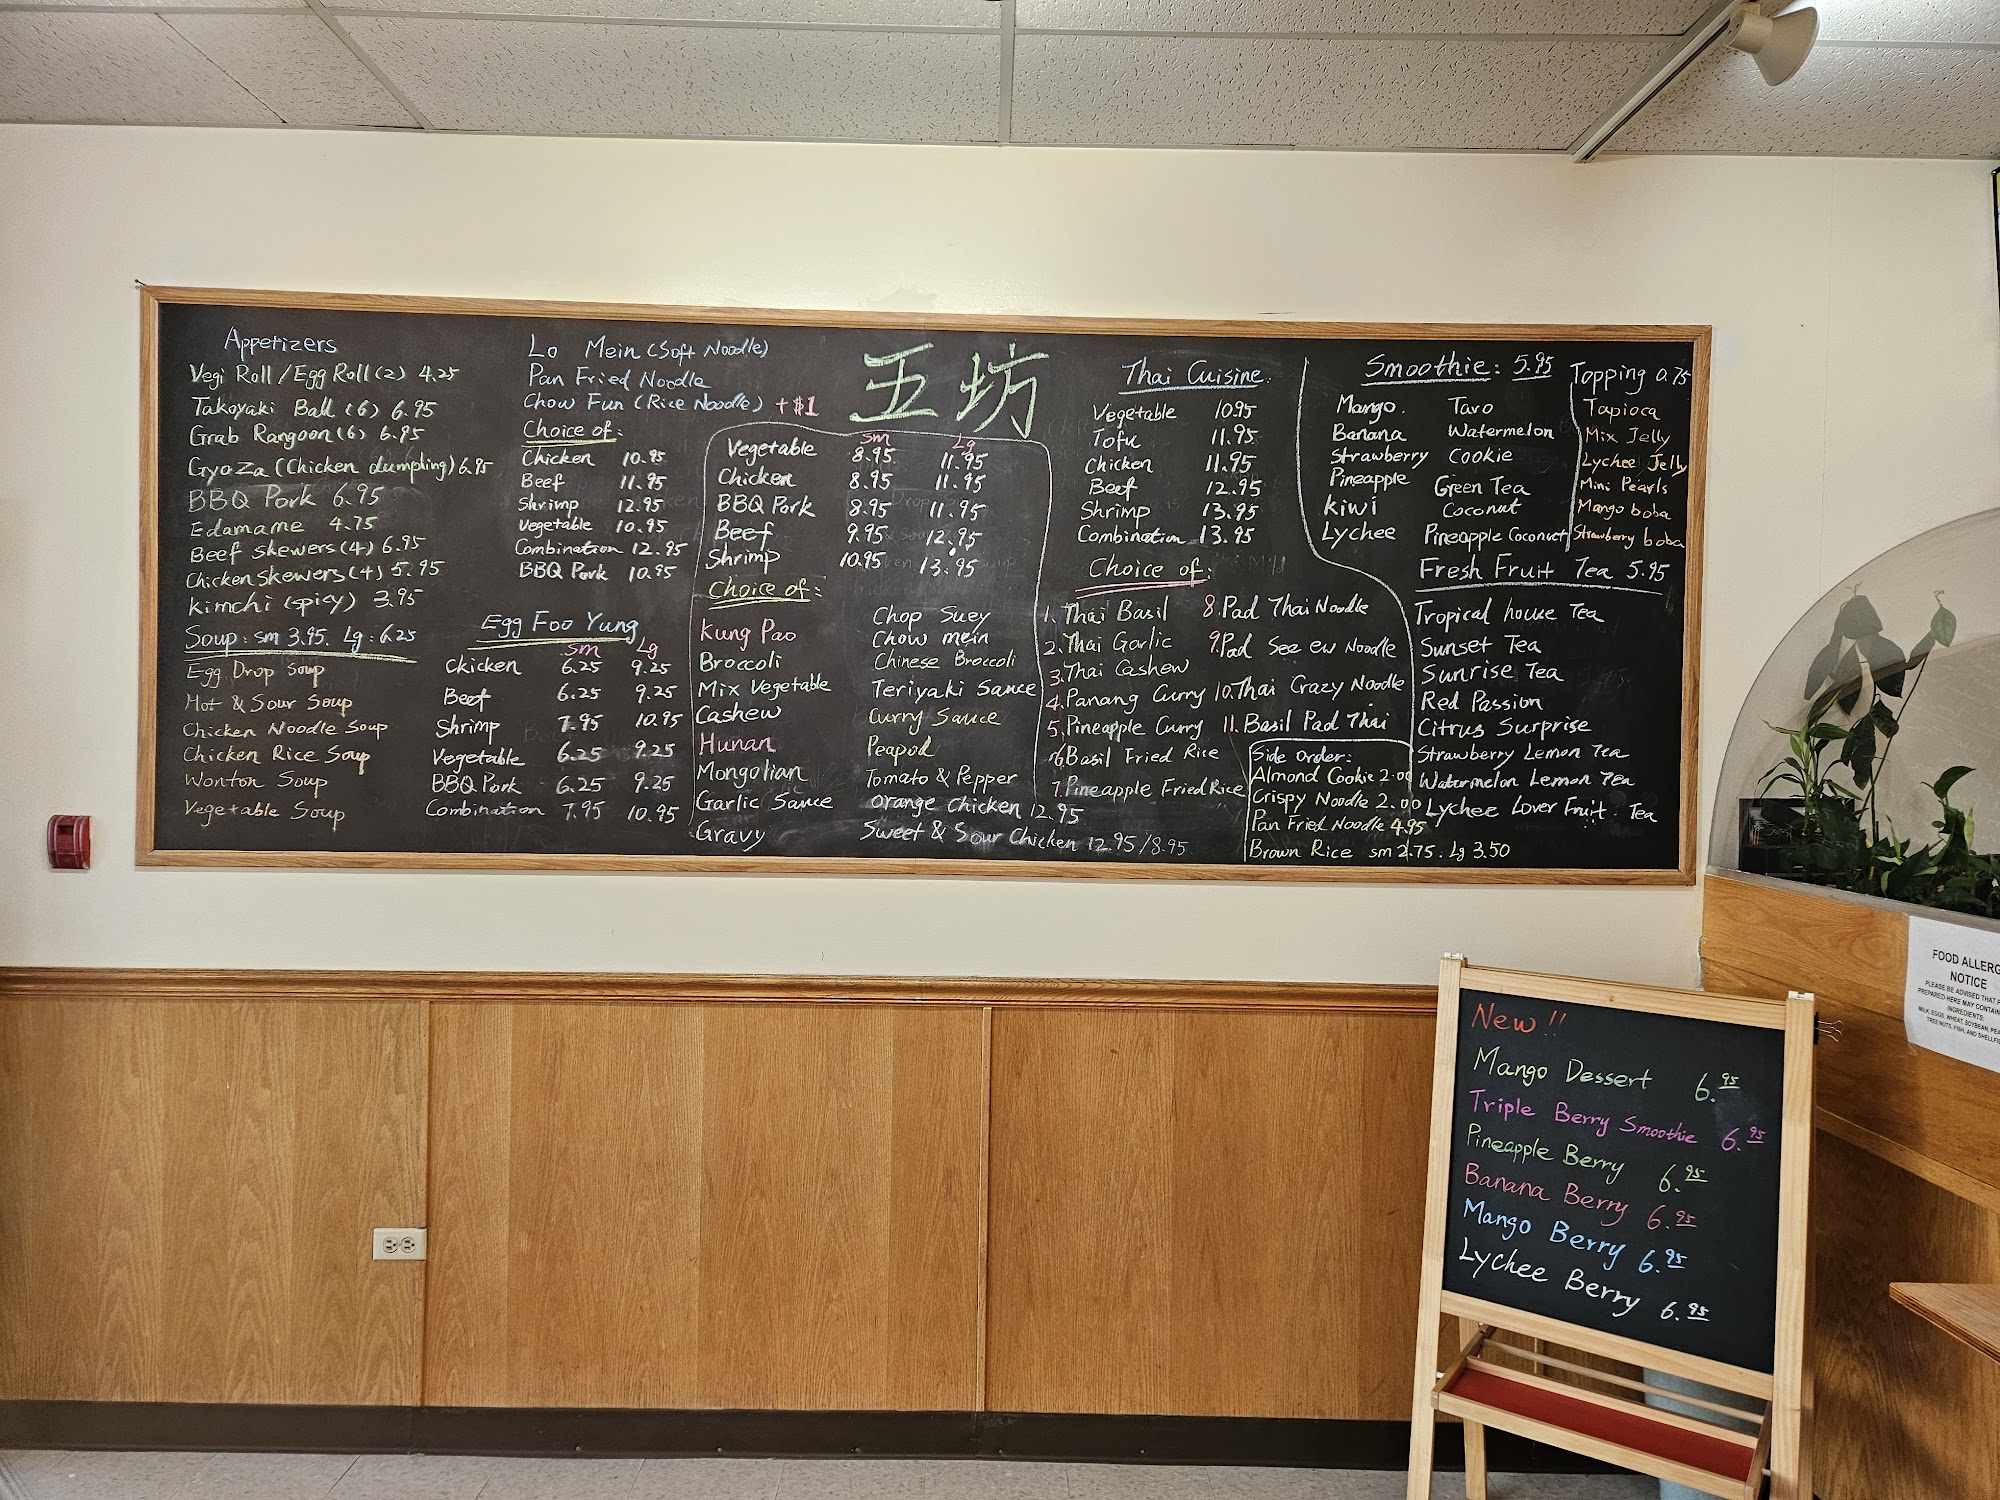 Appetizers
Vegi Roll/Egg Roll(2) 4.25
Takoyaki Ball (6) 6.95
Grab Rangoon(6) 6.95
Gyoza (Chicken dumpling) 6.95
BBQ Pork 6.95
Edamame 4.75
Beef skewers(4) 6.95
Chicken skewers(4) 5.95
kimchi (spicy) 3.95
Soup: sm 3.95. Lg: 6.25
Egg Drop Soup
Hot & Sour Soup
Chicken Noodle Soup
Chicken Rice Soup
Wonton Soup
Vegetable Soup
Lo Mein (Soft Noodle)
Pan Fried Noodle
Chow Fun (Rice Noodle) +$1
Choice of:
Chicken 10.95
Beef 11.95
Shrimp 12.95
Vegetable 10.95
Combination 12.95
BBQ Pork 10.95
Egg Foo Yung
sm Lg
Chicken 6.25 9.25
Beef 6.25 9.25
Shrimp 7.95 10.95
Vegetable 6.25 9.25
BBQ Pork 6.25 9.25
Combination 7.95 10.95
五坊
sm Lg
Vegetable 8.95 11.95
Chicken 8.95 11.95
BBQ Pork 8.95 11.95
Beef 9.95 12.95
Shrimp 10.95 13.95
Choice of:
Kung Pao
Broccoli
Mix Vegetable
Cashew
Hunan
Mongolian
Garlic Sauce
Gravy
Chop Suey
Chow mein
Chinese Broccoli
Teriyaki Sauce
Curry Sauce
Peapod
Tomato & Pepper
Orange Chicken 12.95
Sweet & Sour Chicken 12.95/8.95
Thai Cuisine:
Vegetable 10.95
Tofu 11.95
Chicken 11.95
Beef 12.95
Shrimp 13.95
Combination 13.95
Choice of:
1. Thai Basil
2. Thai Garlic
3. Thai Cashew
4. Panang Curry
5. Pineapple Curry
6. Basil Fried Rice
7. Pineapple Fried Rice
8. Pad Thai Noodle
9. Pad See ew Noodle
10. Thai Crazy Noodle
11. Basil Pad Thai
Side Order:
Almond Cookie 2.00
Crispy Noodle 2.00
Pan Fried Noodle 4.95
Brown Rice sm 2.75. Lg 3.50
Smoothie: 5.95
Mango.
Banana
Strawberry
Pineapple
kiwi
Lychee
Taro
Watermelon
Cookie
Green Tea
Coconut
Pineapple Coconut
Topping 0.75
Tapioca
Mix Jelly
Lychee Jelly
Mini Pearls
Mango boba
Strawberry boba
Fresh Fruit Tea 5.95
Tropical house Tea
Sunset Tea
Sunrise Tea
Red Passion
Citrus Surprise
Strawberry Lemon Tea
Watermelon Lemon Tea
Lychee Lover Fruit. Tea
New!!
Mango Dessert 6.95
Triple Berry Smoothie 6.95
Pineapple Berry 6.95
Banana Berry 6.95
Mango Berry 6.95
Lychee Berry 6.95
FOOD ALLERG
NOTICE
PLEASE BE ADVISED THAT F
PREPARED HERE MAY CONTAIN
INGREDIENTS:
MILK, EGGS, WHEAT, SOYBEAN, PEA
TREE NUTS, FISH, AND SHELLFIS